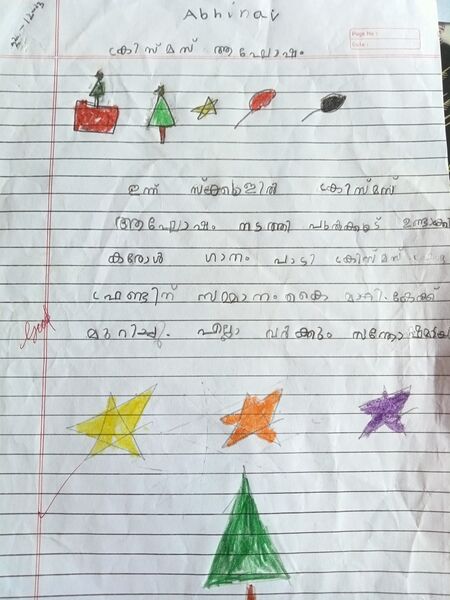 Abhinav
ക്രിസ്മസ് ആഘോഷം
Page No :
Date :
ഇന്ന് ക്രിസ്മസ്
ആഘോഷം നടത്തി പുൽക്കൂട് ഉണ്ടാക്കി
കരോൾ ഗാനം പാടി ക്രിസ്മസ്
ഫ്രണ്ടിന് സമ്മാനം കൈ മാറി. കേക്ക്
മുറിച്ചു. എല്ലാ വർക്കും സന്തോഷമായ
Good